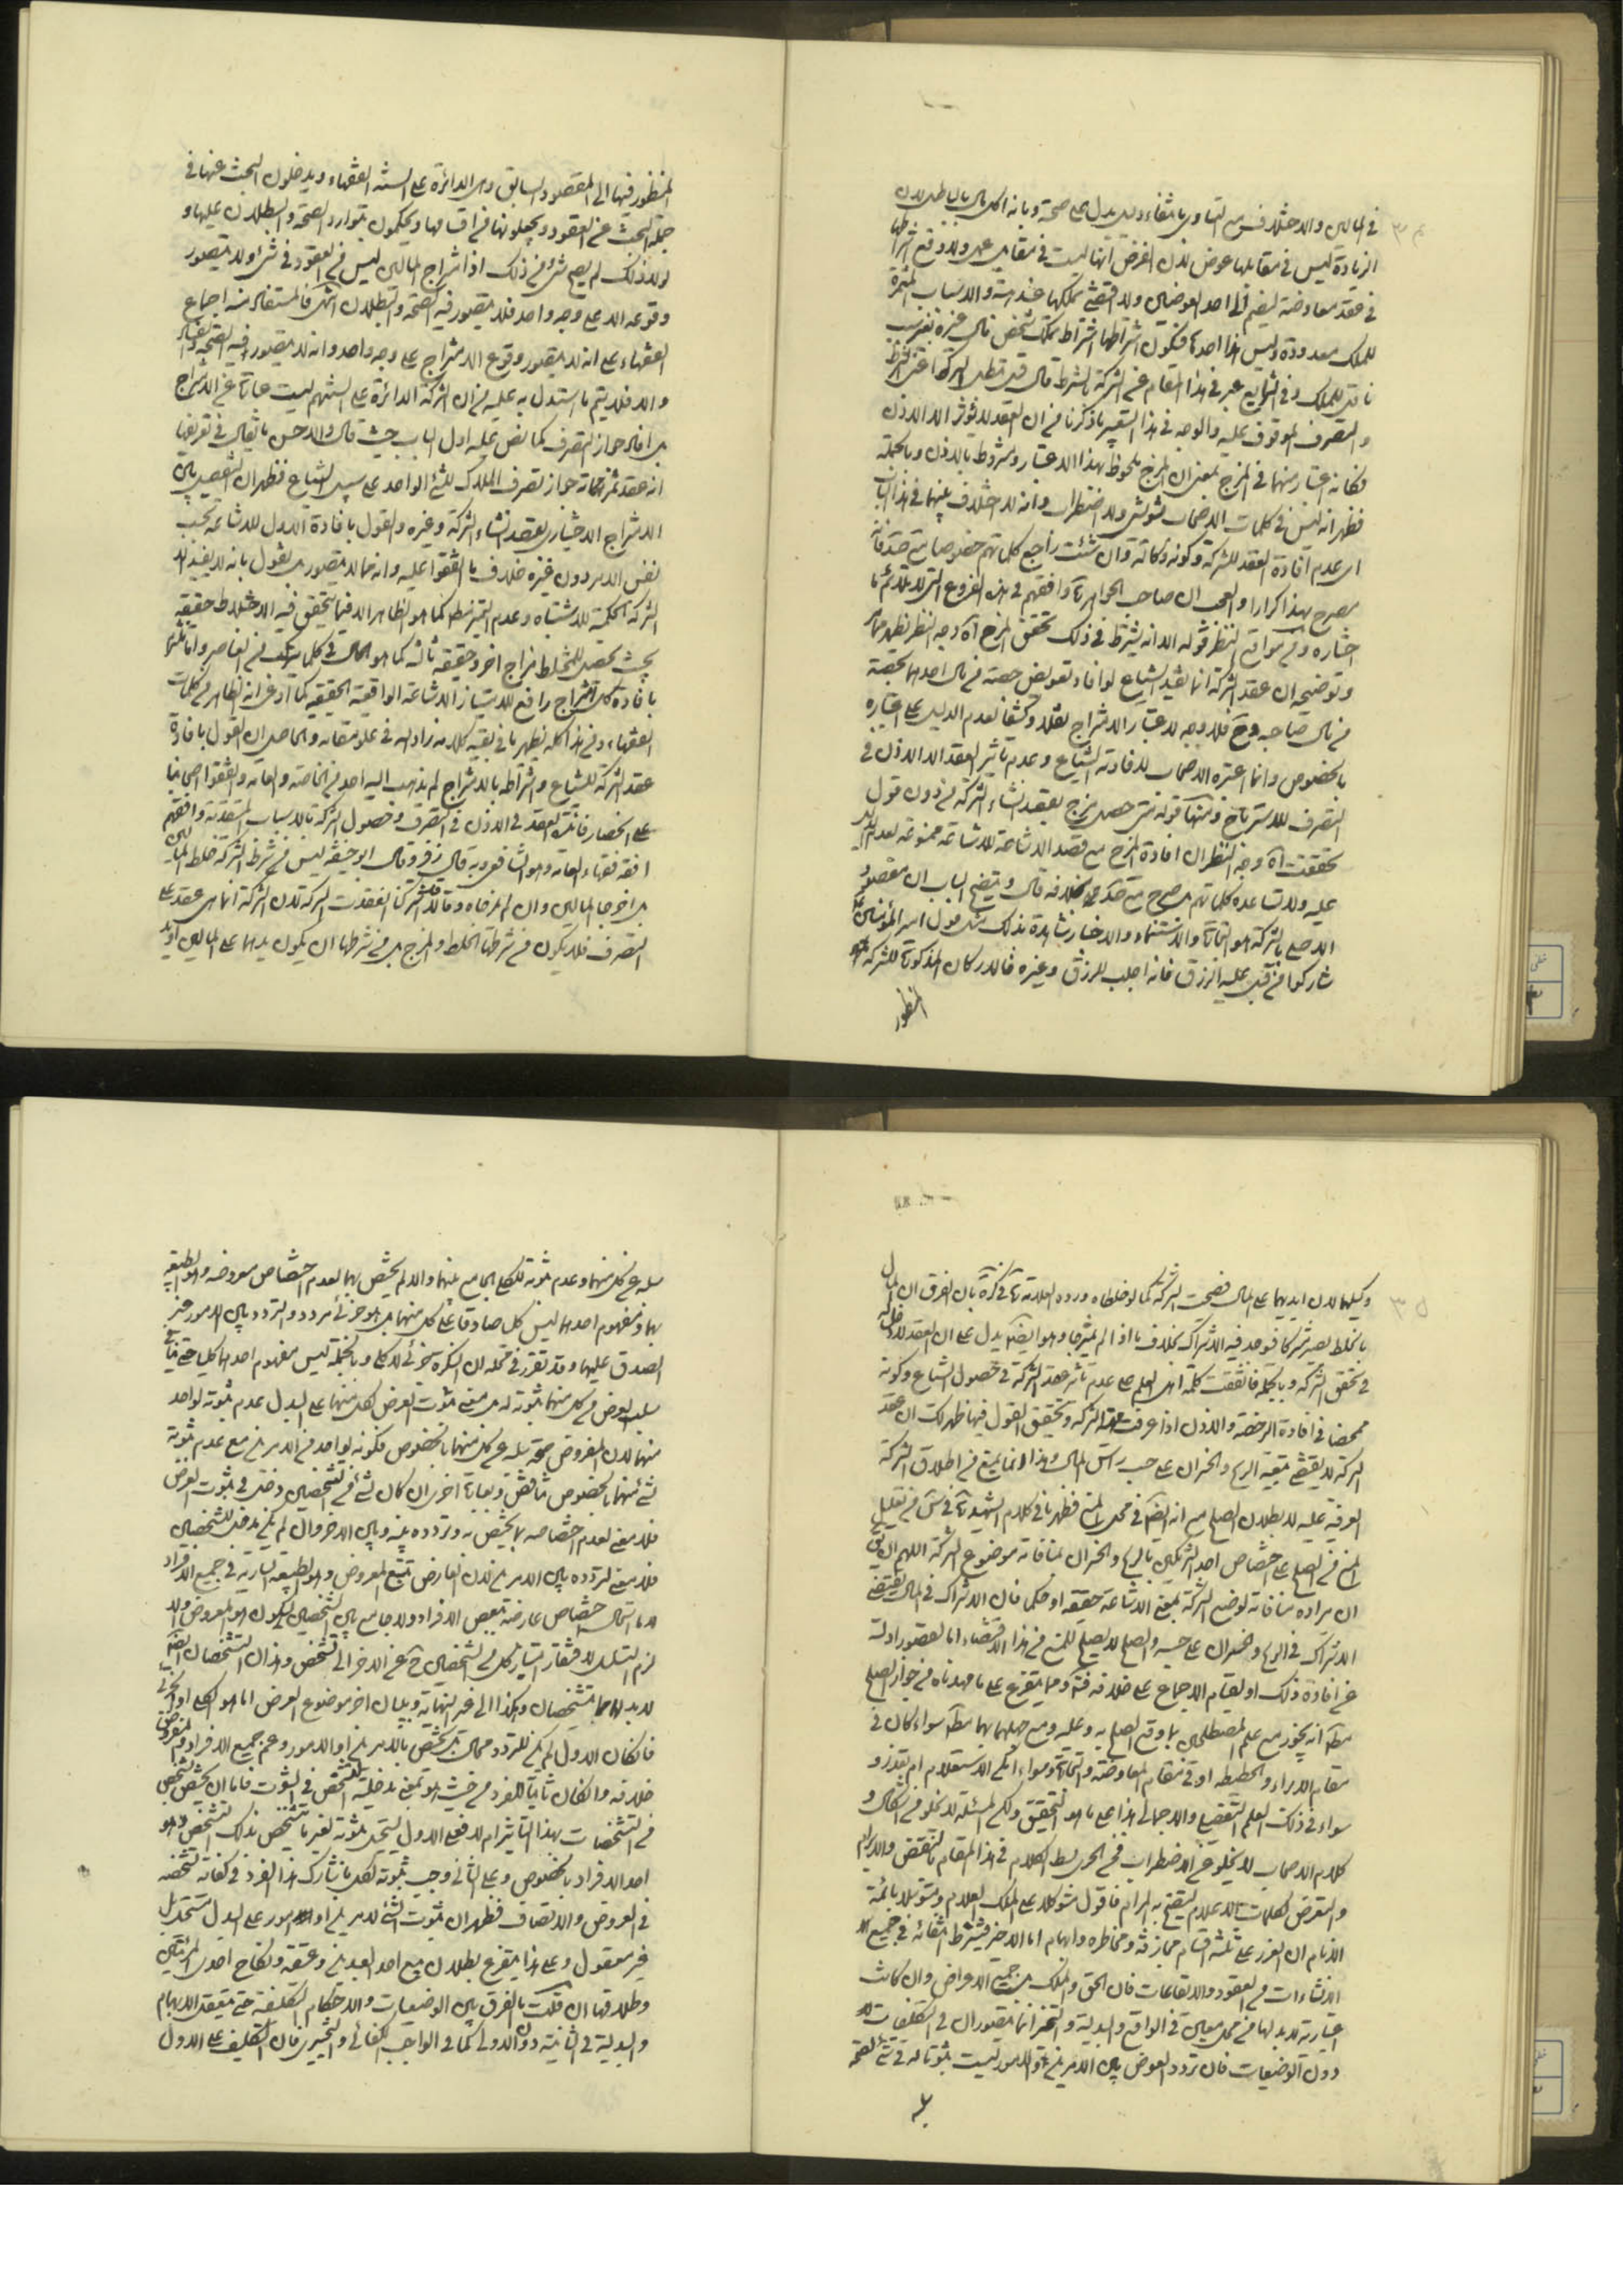 في المالين والاختلاف مع التساوي بانتفاء دليل يدل على صحته وبانه اكل مال بالباطل لان
الزيادة ليس في مقابلها عوض لان الفرض انها ليست في مقابل عمل ولا وقع اشتراطها
في عقد معاوضة ليضم الى احد العوضين ولا اقتضى تملكها عقد هبة والاسباب المثمرة
للملك معدودة وليس هذا احدها فيكون اشتراطها اشتراط تملك شخص مال غيره بغير سبب
ناقل للملك وفي عبر في هذا المقام عن الشركة بالشرط قال قد تبطل الشركة اعني الشرط
والتصرف الموقوف عليه والوجه في هذا التعبير ما ذكرنا من ان العقد لا يؤثر الا الاذن
فكانه اعتبار منهما في المزج بمعنى ان المزج ملحوظ بهذا الاعتبار ومشروط بالاذن وبالجملة
فظهر انه ليس في كلمات الاصحاب تشويش ولا اضطراب وانه لا اختلاف بينهما في هذا الباب
اي عدم افادة العقد للشركة وكونه وكالة وان شئت راجع كلماتهم خصوصا
يصرح بهذا كرارا والعجب ان صاحب الجواهر ره وافقهم في هذه الفروع التي لا تلائم ما
اختاره ومن مواقع النظر قوله الا انه يشترط في ذلك تحقق المزج اه وجه النظر يظهر مما مر
وتوضيحه ان عقد الشركة انما يفيد الشياع لو افاد تعويض حصة من مال احدهما بحصة
من مال صاحبه وح فلا وجه لاعتبار الامتزاج نقلا وكشفا لعدم الدليل على اعتباره
بالخصوص وانما اعتبره الاصحاب لافادته الشياع وعدم تاثير العقد الا الاذن في
التصرف للاسترباح ومنها قوله متى حصل مزج بقصد انشاء الشركة من دون قول
تحققت اه وجه النظر ان افادة المزج مع قصد الاشاعة للاشاعة ممنوعة لعدم الدليل
عليه ولا تساعده كلماتهم بل صرح خلافه قال ويتضح الباب ان مقصود
الاصلي بالشركة هو التجارة والاستنماء والاخبار شاهدة بذلك مثل قول امير المؤمنين ع
شاركوا من اقبل عليه الرزق فانه اجلب للرزق وغيره فالاركان المذكورة للشركة
المنظور
المنظور فيها الى المقصود السابق وهي الدائرة على السنة الفقهاء ويدخلون البحث عنها في
جملة البحث عن العقود ويجعلونها من اقسامها ويحكمون بتوارد الصحة والبطلان عليها و
لولا ذلك لم يصح شيء من ذلك اذا امتزاج المالين ليس من العقود في شيء ولا يتصور
وقوعه الا على وجه واحد فلا يتصور فيه الصحة والبطلان انتهى فالمستفاد منه اجماع
الفقهاء على انه لا يتصور وقوع الامتزاج على وجه واحد وانه لا يتصور فيه الصحة والفساد
والا فلا يتم ما استدل به عليه من ان الشركة الدائرة على السنتهم ليست عبارة عن الامتزاج
بل افاد جواز التصرف كما نص عليه اول الباب حيث قال والاحسن ما يقال في تعريفها
انه عقد ثمرته جواز تصرف الملاك للشيء الواحد على سبيل الشياع فظهر ان التفصيل بين
الامتزاج الاختياري بقصد انشاء الشركة وغيره والقول بافادة الاول للاشاعة بحسب
نفس الامر دون غيره خلاف ما اتفقوا عليه وانه مما لا يتصور بل يقول بانه لا يفيد الا
الشركة الحكمية للاشتباه وعدم التميز فقط كما هو الظاهر الا فيما يتحقق فيه الاختلاط حقيقة
بحيث تحصل للمختلط مزاج اخر وحقيقة ثالثة كما هو الحال في كلما تركب من العناصر واما
بافادة كل امتزاج رافع للامتياز الاشاعة الواقعية الحقيقية كما ادعى انه الظاهر من كلمات
الفقهاء ومن هذا كله يظهر ما في بقية كلامه زاد الله في علو مقامه والحاصل ان القول بافادة
عقد الشركة للشياع واشتراطه بالامتزاج لم يذهب اليه احد من الخاصة والعامة واتفقوا اصحابنا
على انحصار فائدة العقد في الاذن في التصرف وحصول الشركة بالاسباب المتقدمة ووافقهم
افقه فقهاء العامة وهو الشافعي وبه قال زفر وقال ابو حنيفة ليس من شرط الشركة خلط المالين
بل متى اخرجا المالين وان لم يخلطاه وقالا قد اشتركنا انعقدت الشركة لان الشركة انما هي عقد على
التصرف فلا يكون من شرطها الخلط والمزج بل من شرطها ان يكون يدهما على المالين او يد
وكيليهما لان ايديهما على المال فصحت الشركة كما لو خلطاه ورده العلامة ره في كره بان الفرق ان المال
بالخلط يصير مشتركا فوجد فيه الاشتراك بخلاف ما اذا لم يمتزجا وهو ايضا يدل على ان العقد لا دخل له
في تحقق الشركة وبالجملة فاتفقت كلمة اهل العلم على عدم تاثير عقد الشركة في حصول الشياع وكونه
ممحضا في افادة الرخصة والاذن اذا عرفت حقيقة الشركة وتحقيق القول فيها ظهر لك ان عقد
الشركة لا يقتضي تبعية الربح والخسران على حسب راس المال وهذا انما يمنع من اطلاق الشركة
العرفية عليه لا بطلان الصلح مع انه ايضا في محل المنع فظهر ما في كلام الشهيد ره في س من تعليل
المنع من الصلح على اختصاص احد الشريكين بالربح والخسران لمنافاته موضوع الشركة اللهم ان يكون
ان مراده منافاته لوضع الشركة بمعنى الاشاعة حقيقة او حكما فان الاشتراك في المال يقتضي
الاشتراك في الربح والخسران على حسبه والصلح لا يصلح للمنع من هذا الاقتضاء اما لقصور ادلته
عن افادة ذلك او لقيام الاجماع على خلافه فته ومما يتفرع على ما مهدناه من جواز الصلح
مطه انه يجوز مع علم المصطلحين بما وقع الصلح به وعليه ومع جهلهما بهما مطه سواء كان في
مقام الابراء والحطيطة او في مقام المعاوضة والتجارة وسواء امكن الاستعلام ام تعذر و
سواء في ذلك العلم التفصيلي والاجمالي هذا على ما هو التحقيق ولكن المسئلة لا تخلو من اشكال و
كلام الاصحاب لا يخلو عن اضطراب فمن الحري بسط الكلام في هذا المقام بالنقض والابرام
والتعرض لكلمات الاعلام ليتضح به المرام فاقول متوكلا على الملك العلام ومتوسلا بائمة
الانام ان الغرر على ثلثة اقسام مجازفة ومخاطرة وابهام اما الاخير فيشترط انتفائه في جميع الا
الانشاءات من العقود والايقاعات فان الحق والملك من جميع الاعراض وان كانت
اعتبارية لا بد لها من محل معين في الواقع والبدلية والتخيير انما يتصوران في التكليفات لا
دون الوضعيات فان تردد العوض بين الامرين او الامور ليست ثبوتا له في شيء لصحة
سلبه
سلبه عن كل منهما وعدم ثبوته للكلي الجامع بينهما والا لم يختص بهما لعدم اختصاص معروضه وهو الطبيعة
بهما ومفهوم احدهما ليس كل صادقا على كل منهما بل هو جزئي مردد والتردد بين الامور غير
الصدق عليهما وقد تقرر في محله ان النكرة جزئي لا كلي وبالجملة ليس مفهوم احدهما كليا حتى
سلب العوض من كل منهما بثبوته له بل معنى ثبوت العرض لكل منهما على البدل عدم ثبوته لواحد
منهما لان المفروض صحة سلبه عن كل منهما بالخصوص فكونه لواحد من الامرين مع عدم ثبوته
لشيء منهما بالخصوص تناقض وبعبارة اخرى ان كان لشيء من التشخصين دخل في ثبوت العرض
فلا معنى لعدم اختصاصه بما يختص به وتردده بينه وبين الاخر وان لم يكن مدخل للشخصين
فلا معنى لتردده بين الامرين لان العارض يتبع المعروض وهو الطبيعة السارية في جميع الافراد
لاستحالة اختصاص عارضه ببعض الافراد ولا جامع بين الشخصين ليكون هو المعروض والا
لزم التسلسل لافتقار امتياز كل من الشخصين ح عن الاخر الى تشخص وهذان التشخصان ايضا
لا بد لهما من تشخصان وهكذا الى غير النهاية وببيان اخر موضوع العرض اما هو الكلي او الجزئي
فان كان الاول لم يكن للتردد مجال بل يختص بالامرين او الامور وعم جميع الافراد والمفروض
خلافه وان كان ثانيا للفرد من حيث هو بمعنى مدخلية التشخص في الثبوت فاما ان يختص لتشخص
من التشخصات بهذا التاثير ام لا فعلى الاول يستحيل ثبوته لغير ما تشخص بذلك التشخص وهو
احد الافراد بالخصوص وعلى الثاني وجب ثبوته لكل ما شارك هذا الفرد في كفاية تشخصه
في العروض والاتصاف فظهر ان ثبوت الشيء لامرين او امور على البدل مستحيل بل
غير معقول وعلى هذا يتفرع بطلان بيع احد العبدين وعتقه ونكاح احدى المرئتين
وطلاقها ان قلت ما الفرق بين الوضعيات والاحكام التكليفية حتى يتعقل الابهام
والبدلية في الثانية دون الاولى كما في الواجب الكفائي والتخييري فان التكليف على الاول